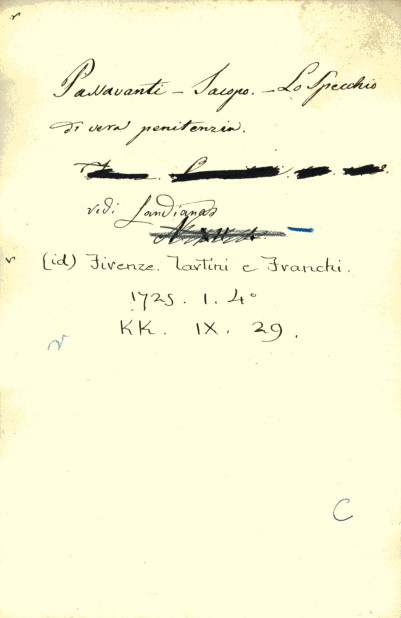 Passavanti – Jacopo. – Lo Specchio
di vera penitenzia.
vedi Landiana
(id) Firenze. Tartini e Franchi.
1725. 1. 4°
KK. IX. 29.
C